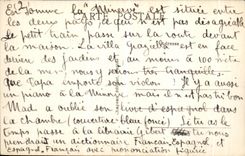 En somme la "Minerve" est située entre
les deux ponts de dax, n'est pas désagréable
CARTE POSTALE
le petit train passe sur la route devant
la maison. La villa grazie est en face
derrière des jardins et au moins à 100 mètres
de la mer. nous serons bien tranquilles.
que Papa emporte son violon. il y a aussi
un piano à la Minerve mais il n'est pas bon
Mad a oublié son livre d'espagnol dans
la chambre (couverture bleu foncé). Si tu as le
temps passe à la librairie Gibert tu nous
prendrais un dictionnaire Français-Espagnol et
Espagnol-Français avec prononciation figurée